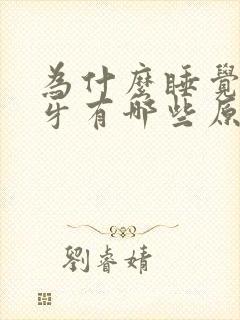 為什麼睡覺
牙有哪些原
劉睿婧